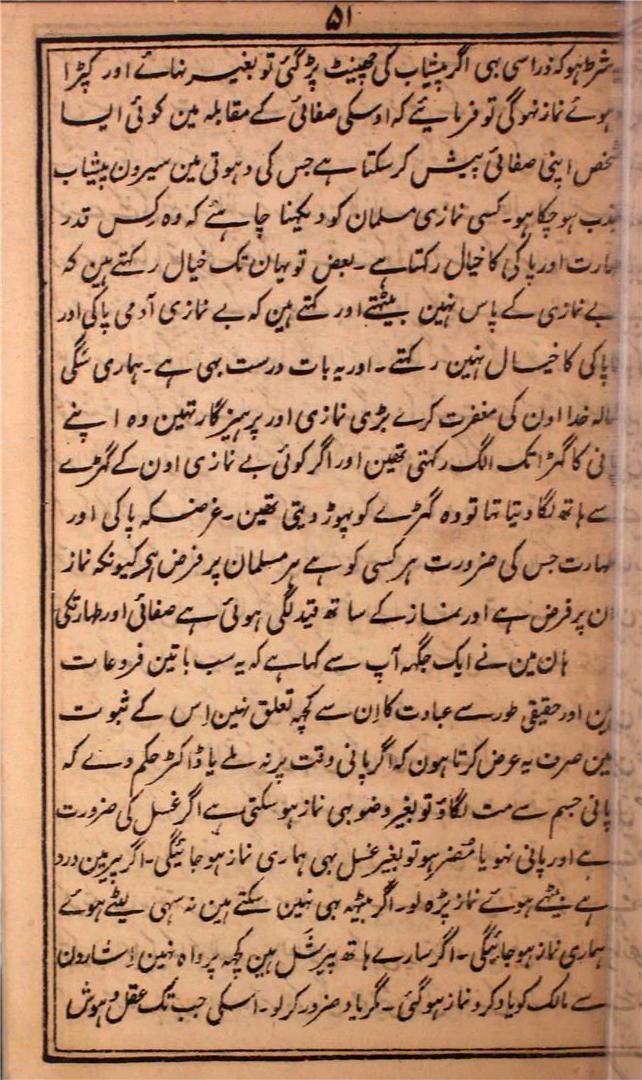 ۵۱
یہ شرط ہو کہ ذرا سی بہی اگر پیشاب کی چھینٹ پڑ گئی تو بغیر نہائے اور کپڑا
دہوئے نماز نہوگی تو فرمائیے کہ اوسکی صفائی کے مقابلہ مین کوئی ایسا
شخص اپنی صفائی پیش کر سکتا ہے جس کی دہوتی مین سیرون پیشاب
جذب ہو چکا ہو۔ کسی نمازی مسلمان کو دیکہنا چاہئے کہ وہ کس قدر
طہارت اور پاکی کا خیال رکہتا ہے۔ بعض تو یہان تک خیال رکہتے ہین کہ
بے نمازی کے پاس نہین بیٹہتے اور کہتے ہین کہ بے نمازی آدمی پاکی اور
ناپاکی کا خیال نہین رکہتے۔ اور یہ بات درست بہی ہے۔ ہماری سگی
خالہ خدا اون کی مغفرت کرے بڑی نمازی اور پرہیزگار تہین وہ اپنے
پانی کا گہڑا تک الگ رکہتی تہین اور اگر کوئی بے نمازی اون کے گہڑے
سے ہاتھ لگا دیتا تہا تو وہ گہڑے کو پہوڑ دیتی تہین۔ غرضکہ پاکی اور
طہارت جس کی ضرورت ہر کسی کو ہے ہر مسلمان پر فرض ہے کیونکہ نماز
ان پر فرض ہے اور نماز کے ساتھ قید لگی ہوئی ہے صفائی اور طہارتکی
ہان مین نے ایک جگہہ آپ سے کہا ہے کہ یہ سب باتین فروعات
ہین اور حقیقی طور سے عبادت کا اِن سے کچہ تعلق نہین اِس کے ثبوت
مین صرف یہ عرض کرتا ہون کہ اگر پانی وقت پر نہ ملے یا ڈاکٹر حکم دے کہ
پانی جسم سے مت لگاؤ تو بغیر وضو بہی نماز ہو سکتی ہے اگر غسل کی ضرورت
ہے اور پانی نہو یا مُضر ہو تو بغیر غسل بہی ہماری نماز ہو جائیگی۔ اگر پیر مین درد
ہے بیٹہے ہوئے نماز پڑہ لو۔ اگر بیٹہہ بہی نہین سکتے ہین نہ سہی لیٹے ہوئے
ہماری نماز ہو جائیگی۔ اگر سارے ہاتھ پیر شَل ہین کچہہ پرواہ نہین اِشارون
سے مالک کو یاد کرو نماز ہو گئی۔ مگر یاد ضرور کر لو۔ اسکی جب تک عقل و ہوش